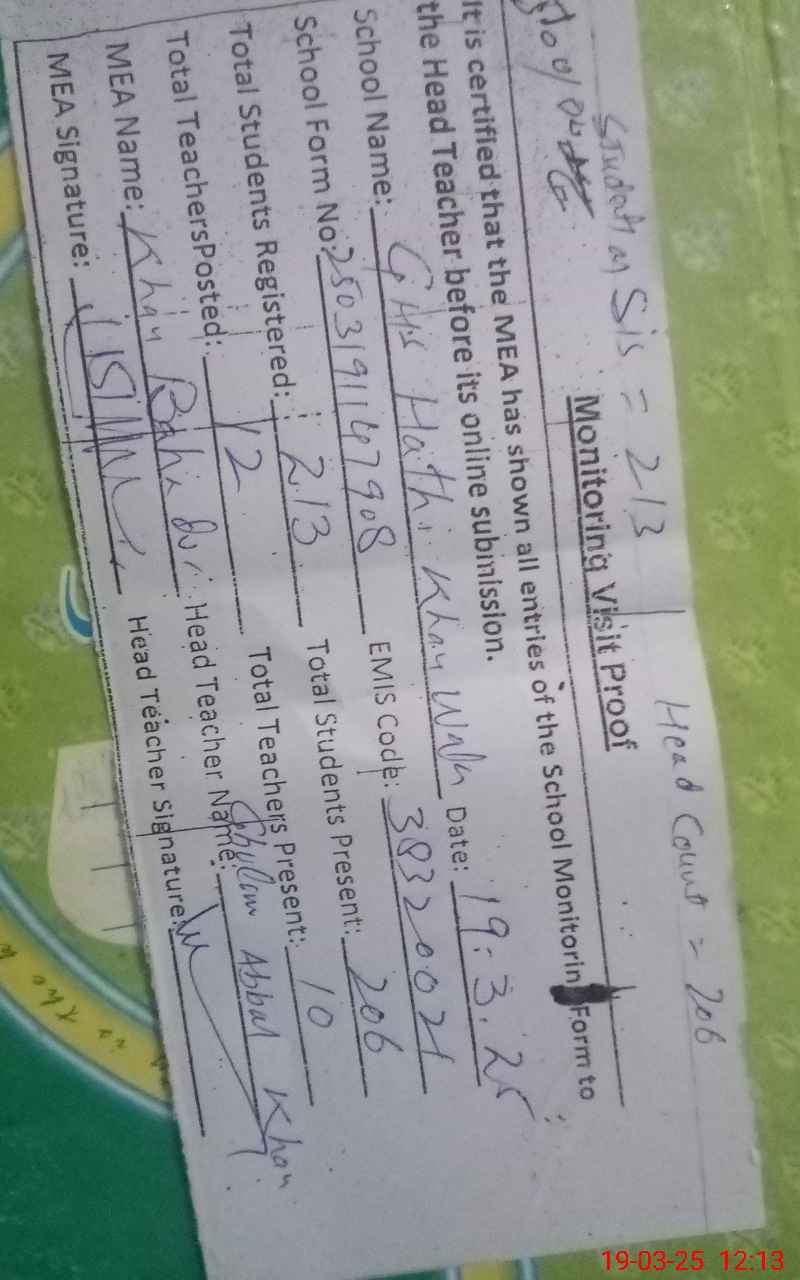 Student on Sis = 213 Head Count = 206
Monitoring Visit Proof
It is certified that the MEA has shown all entries of the School Monitorin Form to
the Head Teacher before its online submission.
School Name: GHS Hathi Khan Wala Date: 19.3.25
School Form No: 2503191147908 EMIS Code: 38320021
Total Students Registered: 213 Total Students Present: 206
Total TeachersPosted: 12 Total Teachers Present: 10
MEA Name: Khan Bahadur Head Teacher Name: Ghulam Abbas Khan
MEA Signature: Head Teacher Signature:
19-03-25 12:13